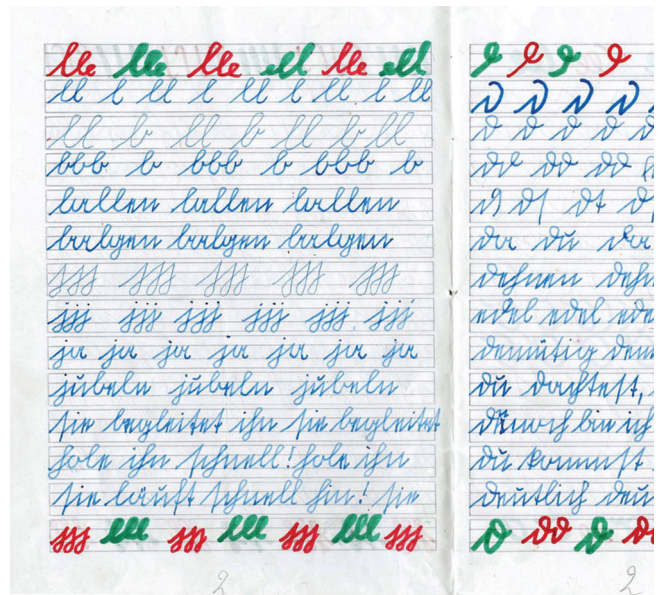 ll l ll l ll l l ll
ll b ll b ll b ll
bbb b bbb b bbb b
lallen lallen lallen
balgen balgen balgen
jjj jjj jjj jjj jjj
jjj jjj jjj jjj jjj jjj
ja ja ja ja ja ja ja
jubeln jubeln jubeln
sie begleitet ihn sie begleitet
hole ihn schnell! hole ihn
sie läuft schnell hin! sie
jjj lll jjj lll jjj lll jjj
2
d d d d
d d d d d
da du da
dehnen dehn
edel edel ede
demütig dem
du dachtest,
bin ich
du kommst
deutlich deu
d dd d d
2